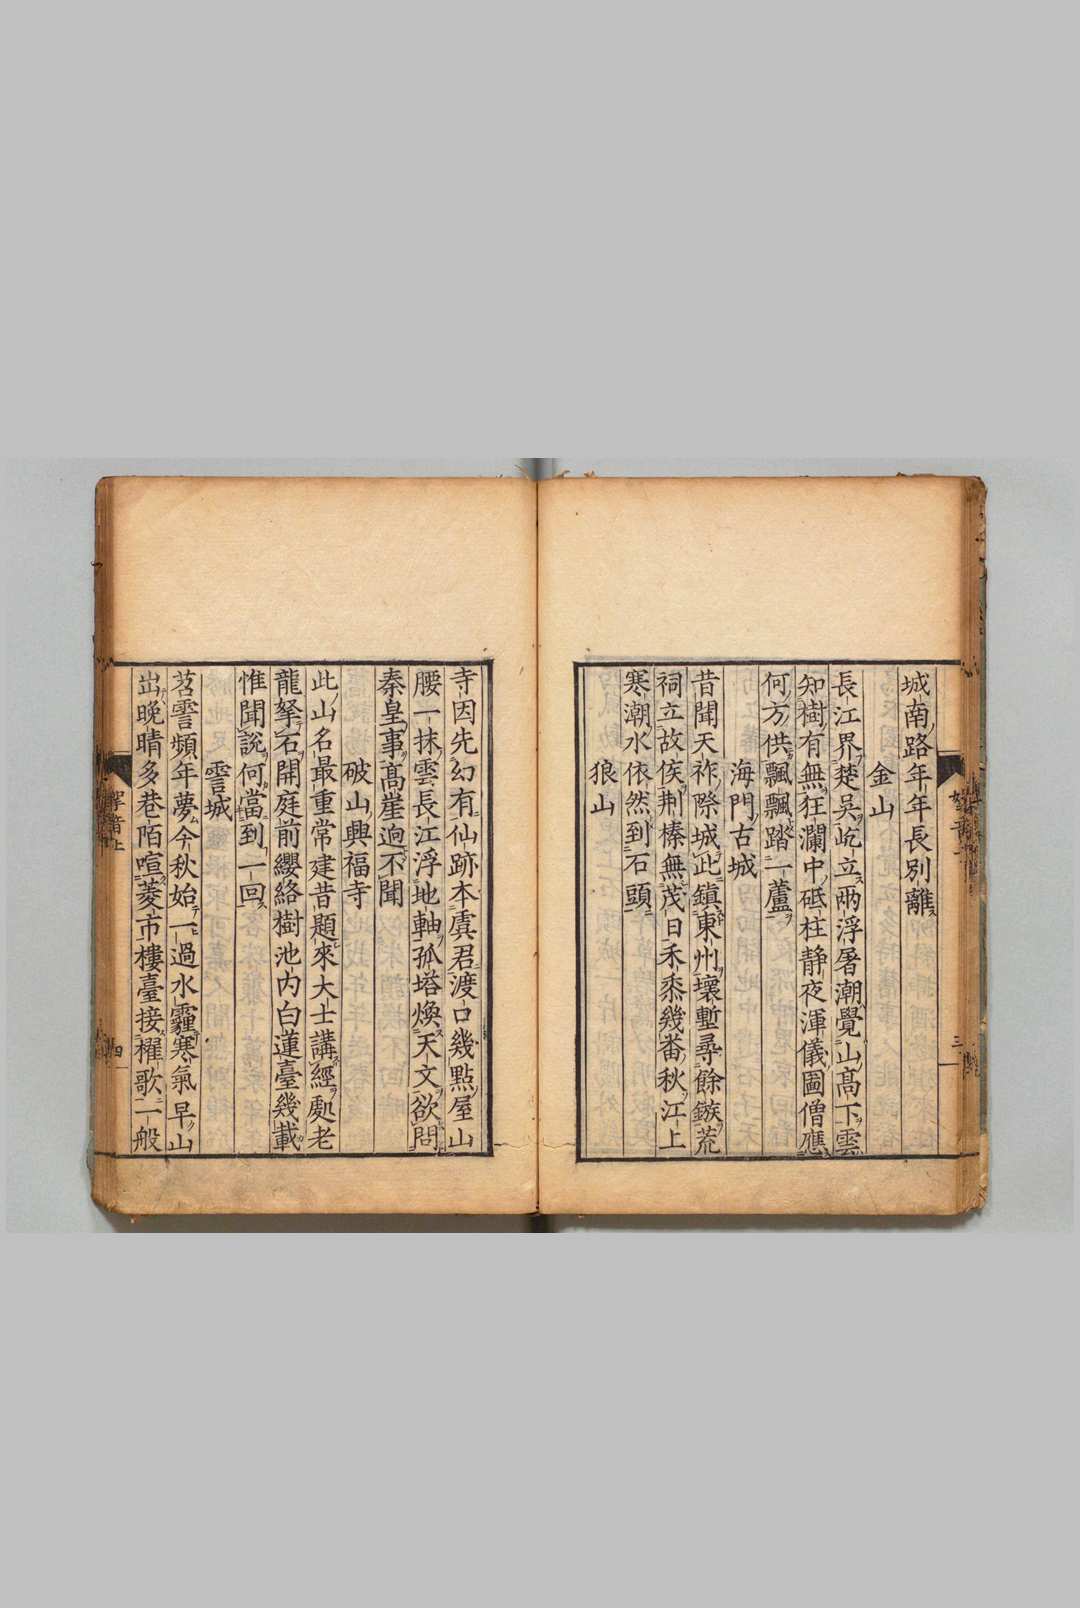 城南路年年長別離
金山
長江界楚吳屹立兩浮屠潮覺山高下雲
知樹有無狂瀾中砥柱靜夜渾儀圖僧應
何方供飄飄踏一蘆
海門古城
昔聞天祚際城此鎮東州壞塹尋餘鏃荒
祠立故侯荆榛無茂日禾黍幾番秋江上
寒潮水依然到石頭
狼山
三
寺因先幻有仙跡本虞君渡口幾點屋山
腰一抹雲長江浮地軸孤塔煥天文欲問
秦皇事高崖逈不聞
破山興福寺
此山名最重常建昔題來大士講經處老
龍拏石開庭前纓絡樹池内白蓮臺幾載
惟聞說何當到一回
霅城
苕霅頻年夢今秋始一過水霾寒氣早山
出晚晴多巷陌喧菱市樓臺接櫂歌一般
上
四